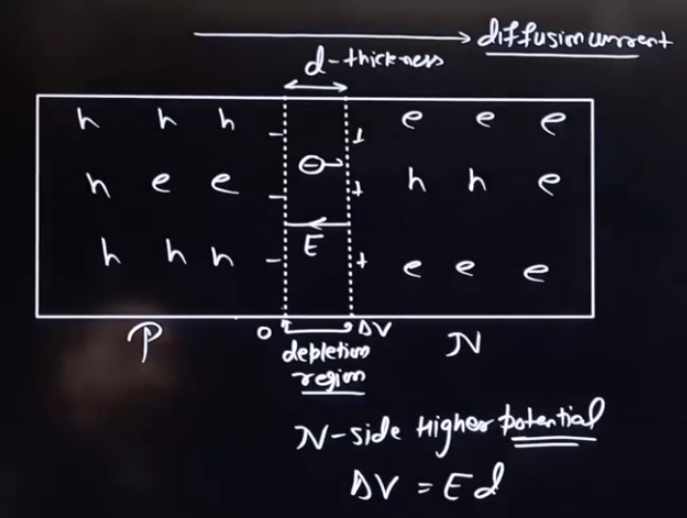 diffusion current
d-thickness
h h h - + e e e
h e e - ⊖→ + h h e
E
h h h - + e e e
0 ΔV
P depletion N
region
N-side Higher potential
ΔV = Ed